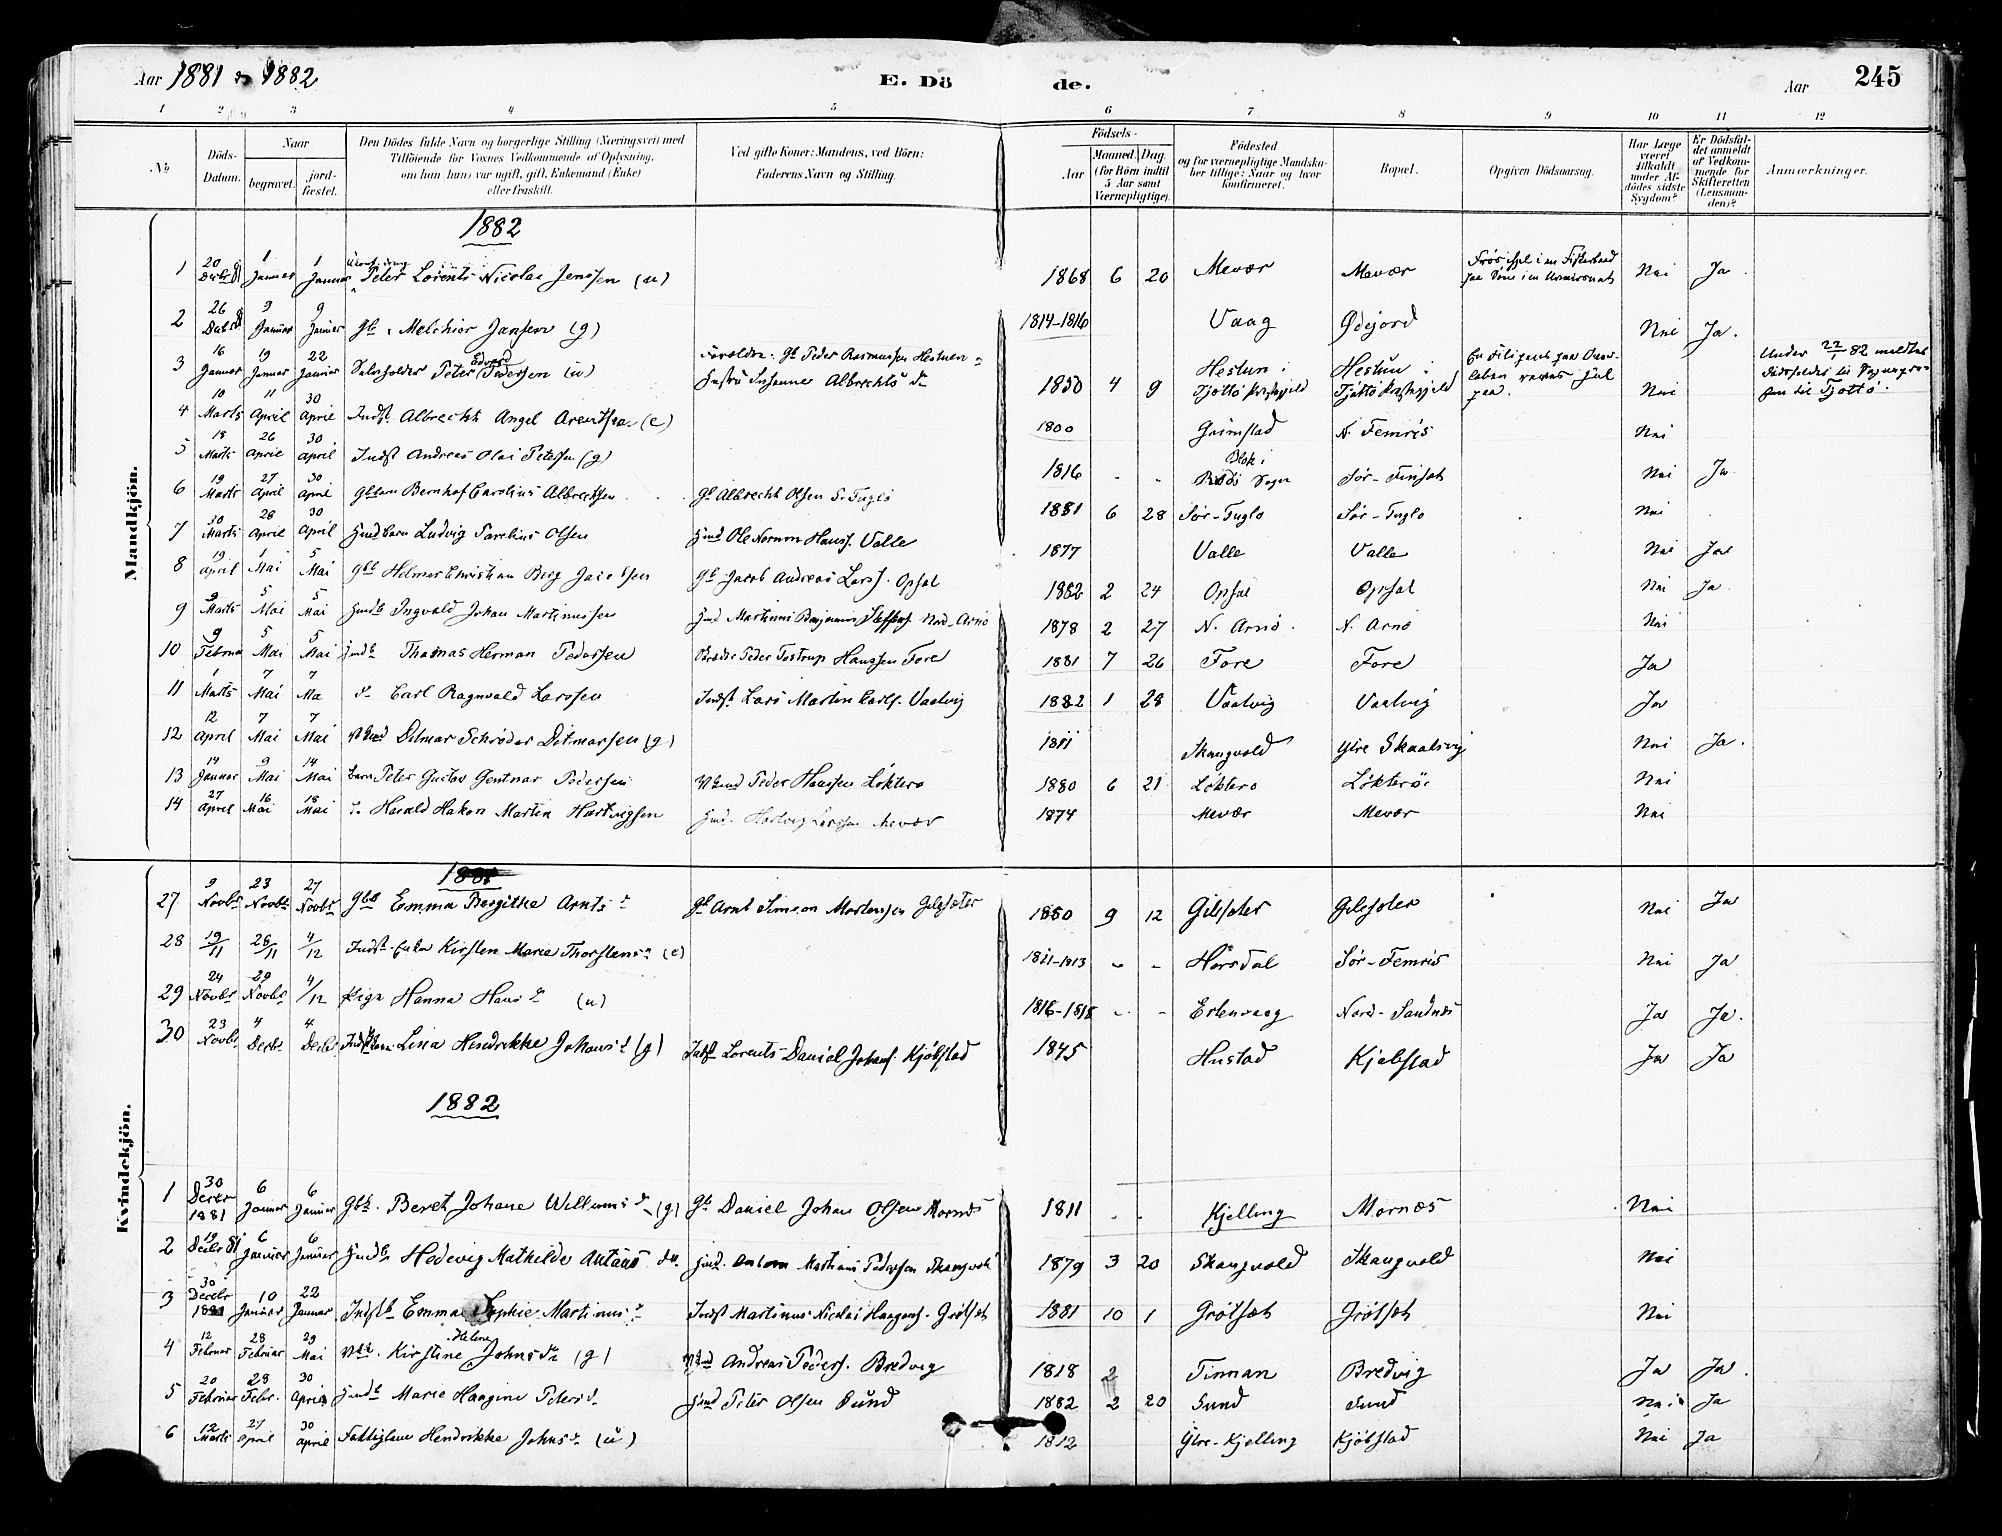 Aar 1881 & 1882
E. Dö de.
Aar
245
1 2 3 4 5 6 7 8 9 10 11 12
No
Döds-Datum.
Naar
begravet.
jord-fæstet.
Den Dödes fulde Navn og borgerlige Stilling (Næringsvei) med
Tilföiende for Voxnes Vedkommende af Oplysning,
om han (hun) var ugift, gift, Enkemand (Enke)
eller fraskilt.
Ved gifte Koner: Mandens, ved Börn:
Faderens Navn og Stilling.
Födsels-
Aar
Maaned. Dag.
(for Börn indtil
5 Aar samt
Værnepligtige).
Födested
og for værnepligtige Mandska-
ber tillige: Naar og hvor
konfirmeret.
Bopæl.
Opgiven Dödsaarsag.
Har Læge
været
tilkaldt
under Af-
dödes sidste
Sygdom?
Er Dödsfal-
det anmeldt
af Vedkom-
mende for
Skifteretten
(Lensman-
den)?
Anmærkninger.
Mandkjön.
1882
1 20 Decbr 81 1 Januar 1 Januar Peter Lorents Nicolai Jenssen (u) 1868 6 20 Mevær Mevær Nei Ja
2 26 Decbr 81 9 Januar 9 Januar Gb. Melchior Jansen (g) 1814-1816 Vaag Ødejord Nei Ja.
3 16 Januar 19 Januar 22 Januar Peter Edvard Pedersen (u) Forældre: Gb Peder Rasmussen Hestuen Hustru Susanne Albrechts dr 1850 4 9 Hestun i Tjøttø Præstegjeld Hestun i Tjøttø Præstegjeld Nei Under 22/ 82 meldtes Dødsfaldet til Tjøttø.
4 10 Marts 11 April 30 April Indst. Albrecht Angel Arentsen (e) 1800 Grimstad N. Femris Nei
5 18 Marts 26 April 30 April Indst Andreas Olai Petersen (g) 1816 - - Blok i Bodø Sogn Sør-Finset Nei Ja
6 19 Marts 27 April 30 April Gbbarn Bernhof Carolius Albrechtsen Gb Albrecht Olsen S. Fuglø 1881 6 28 Sør-Fuglø Sør-Fuglø Nei
7 30 Marts 28 April 30 April Hmdbarn Ludvig Parelius Olsen Hmd Ole Normm Hanss. Valle 1877 Valle Valle Nei Ja
8 19 April 1 Mai 5 Mai Gbb Helmer Christian Berg Jacobsen Gb Jacob Andreas Larss. Opsal 1882 2 24 Opsal Opsal Nei Ja
9 9 Marts 5 Mai 5 Mai Hmdb Ingvald Johan Martinussen Hmd Martinus Benjamin Steffens. Nord-Arnø 1878 2 27 N. Arnø N. Arnø Nei
10 9 Februar 5 Mai 5 Mai Hmdb Thomas Herman Pedersen Peder Tostrup Hanssen Fore 1881 7 26 Fore Fore Ja
11 1 Marts 7 Mai 7 Ma dr Carl Ragnvald Larssen Indst Lars Martin Carls. Vaalvig 1882 1 28 Vaalvig Vaalvig Ja
12 12 April 7 Mai 7 Mai Ditmar Schrøder Ditmarsen (g) 1811 Skaugvold Ytre Skaalsvig Nei Ja.
13 14 Januar 9 Mai 14 Mai barn Peter Gustav Gentnar Pedersen Peder Hanssen Løkterø 1880 6 21 Løkterø Løkterø Nei
14 27 April 16 Mai 18 Mai Harald Hakon Martin Hartvigsen Hmd. Hartvig Larssen Mevær 1874 Mevær Mevær Nei
Kvindekjön.
188
27 9 Novbr 23 Novbr 27 Novbr Gbb Emma Bergitte Arnts dr Gb Arnt Simeon Mortensen Gilesæter 1880 9 12 Gilesæter Gilesæter Nei Ja
28 19/11 28/11 4/12 Indst. Enke Kirsten Marie Thorstens dr (e) 1811-1813 - - Hørsdal Sør-Femris Nei Ja
29 24 Novbr 29 Novbr 4/12 Pige Hanna Hans dr (u) 1816-1818 - - Erlenvaag Nord-Sandnes Ja Ja.
30 23 Novbr 4 Decbr 4 Decbr Lina Hendrikke Johans dr (g) Indst Lorents Daniel Johans. Kjøbstad 1845 Hustad Kjøbstad Ja Ja
1882
1 30 Decbr 1881 6 Januar 6 Januar Gbk. Beret Johane Willums dr (g) Gb Daniel Johan Olsen Mornes 1811 Kjelling Mornes Nei
2 19 Decbr 81 6 Januar 6 Januar Hmdb Hedevig Mathilde Antons dtr Hmd. Anton Martinus Pedersen Skaugvold 1879 3 20 Skaugvold Skaugvold Nei
3 30 Decebr 1881 10 Januar 22 Januar Indstb Emma Sophie Martinus dr Indst Martinus Nicolai Haagens. Grøtset 1881 10 1 Grøtset Grøtset Nei
4 12 Februar 28 Februar 29 Mai Kirstine Helene Johns dtr (g) Andreas Peders. Bredvig 1818 2 Tinman Bredvig Ja Ja.
5 20 Februar 28 Febr. 30 April Hmdb Marie Haagine Peters dr Hmd Peter Olsen Sund 1882 2 20 Sund Sund Nei Ja
6 12 Marts 27 April 30 April Fattiglem Hendrikke Johns dr (u) 1812 Ytre-Kjelling Kjøbstad Nei Ja